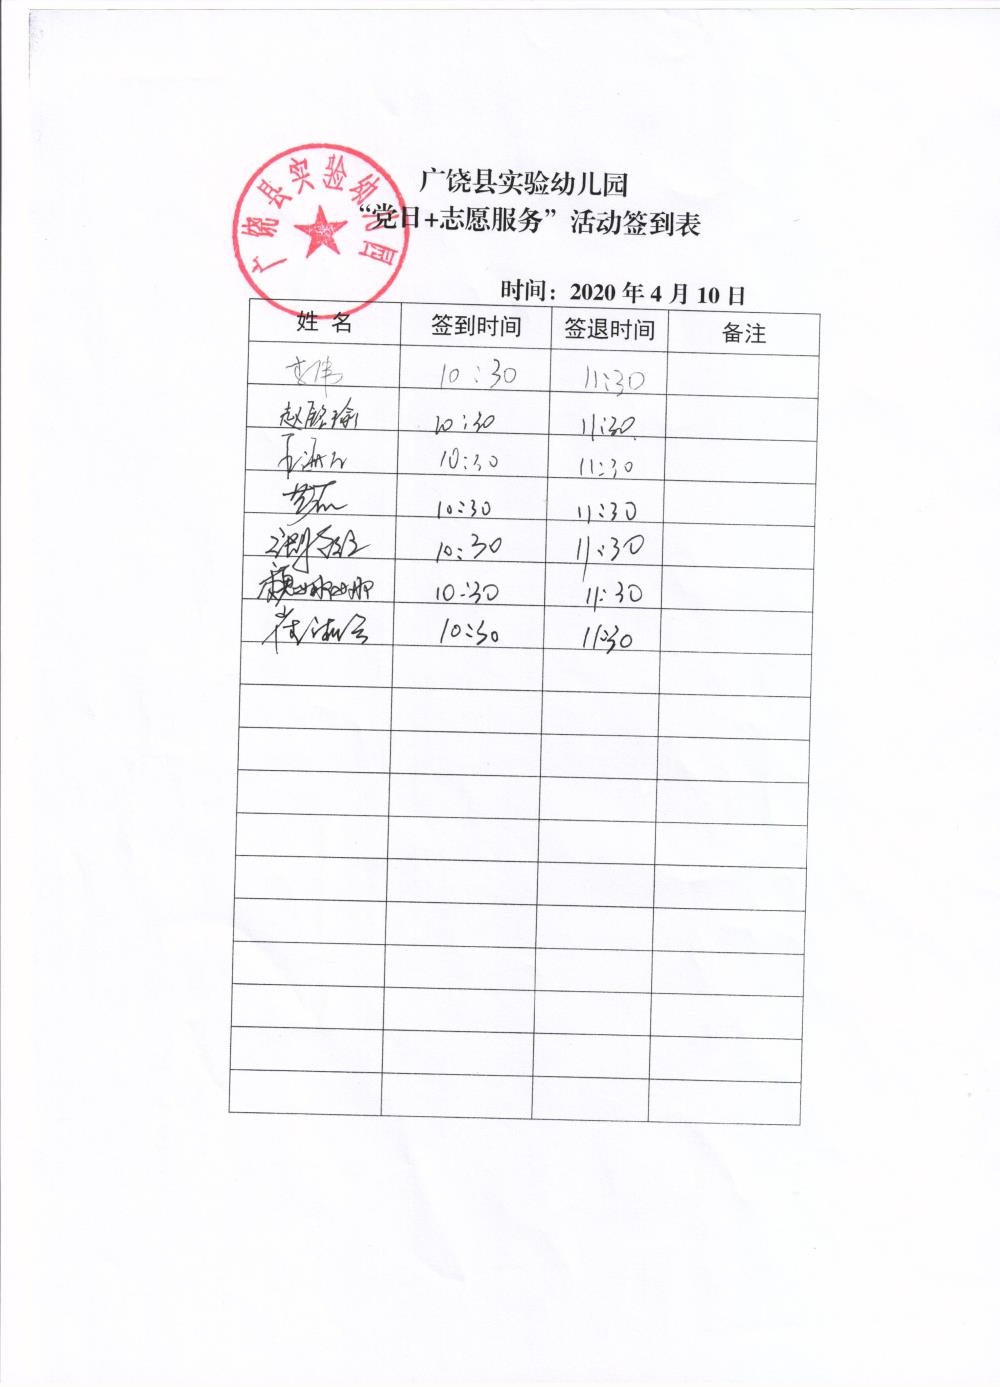 广饶县实验幼儿园
广饶县实验幼儿园
“党日+志愿服务”活动签到表
时间：2020年4月10日
姓 名 签到时间 签退时间 备注
李伟 10:30 11:30
10:30 11:30
10:30 11:30
10:30 11:30
10:30 11:30
魏娜娜 10:30 11:30
10:30 11:30